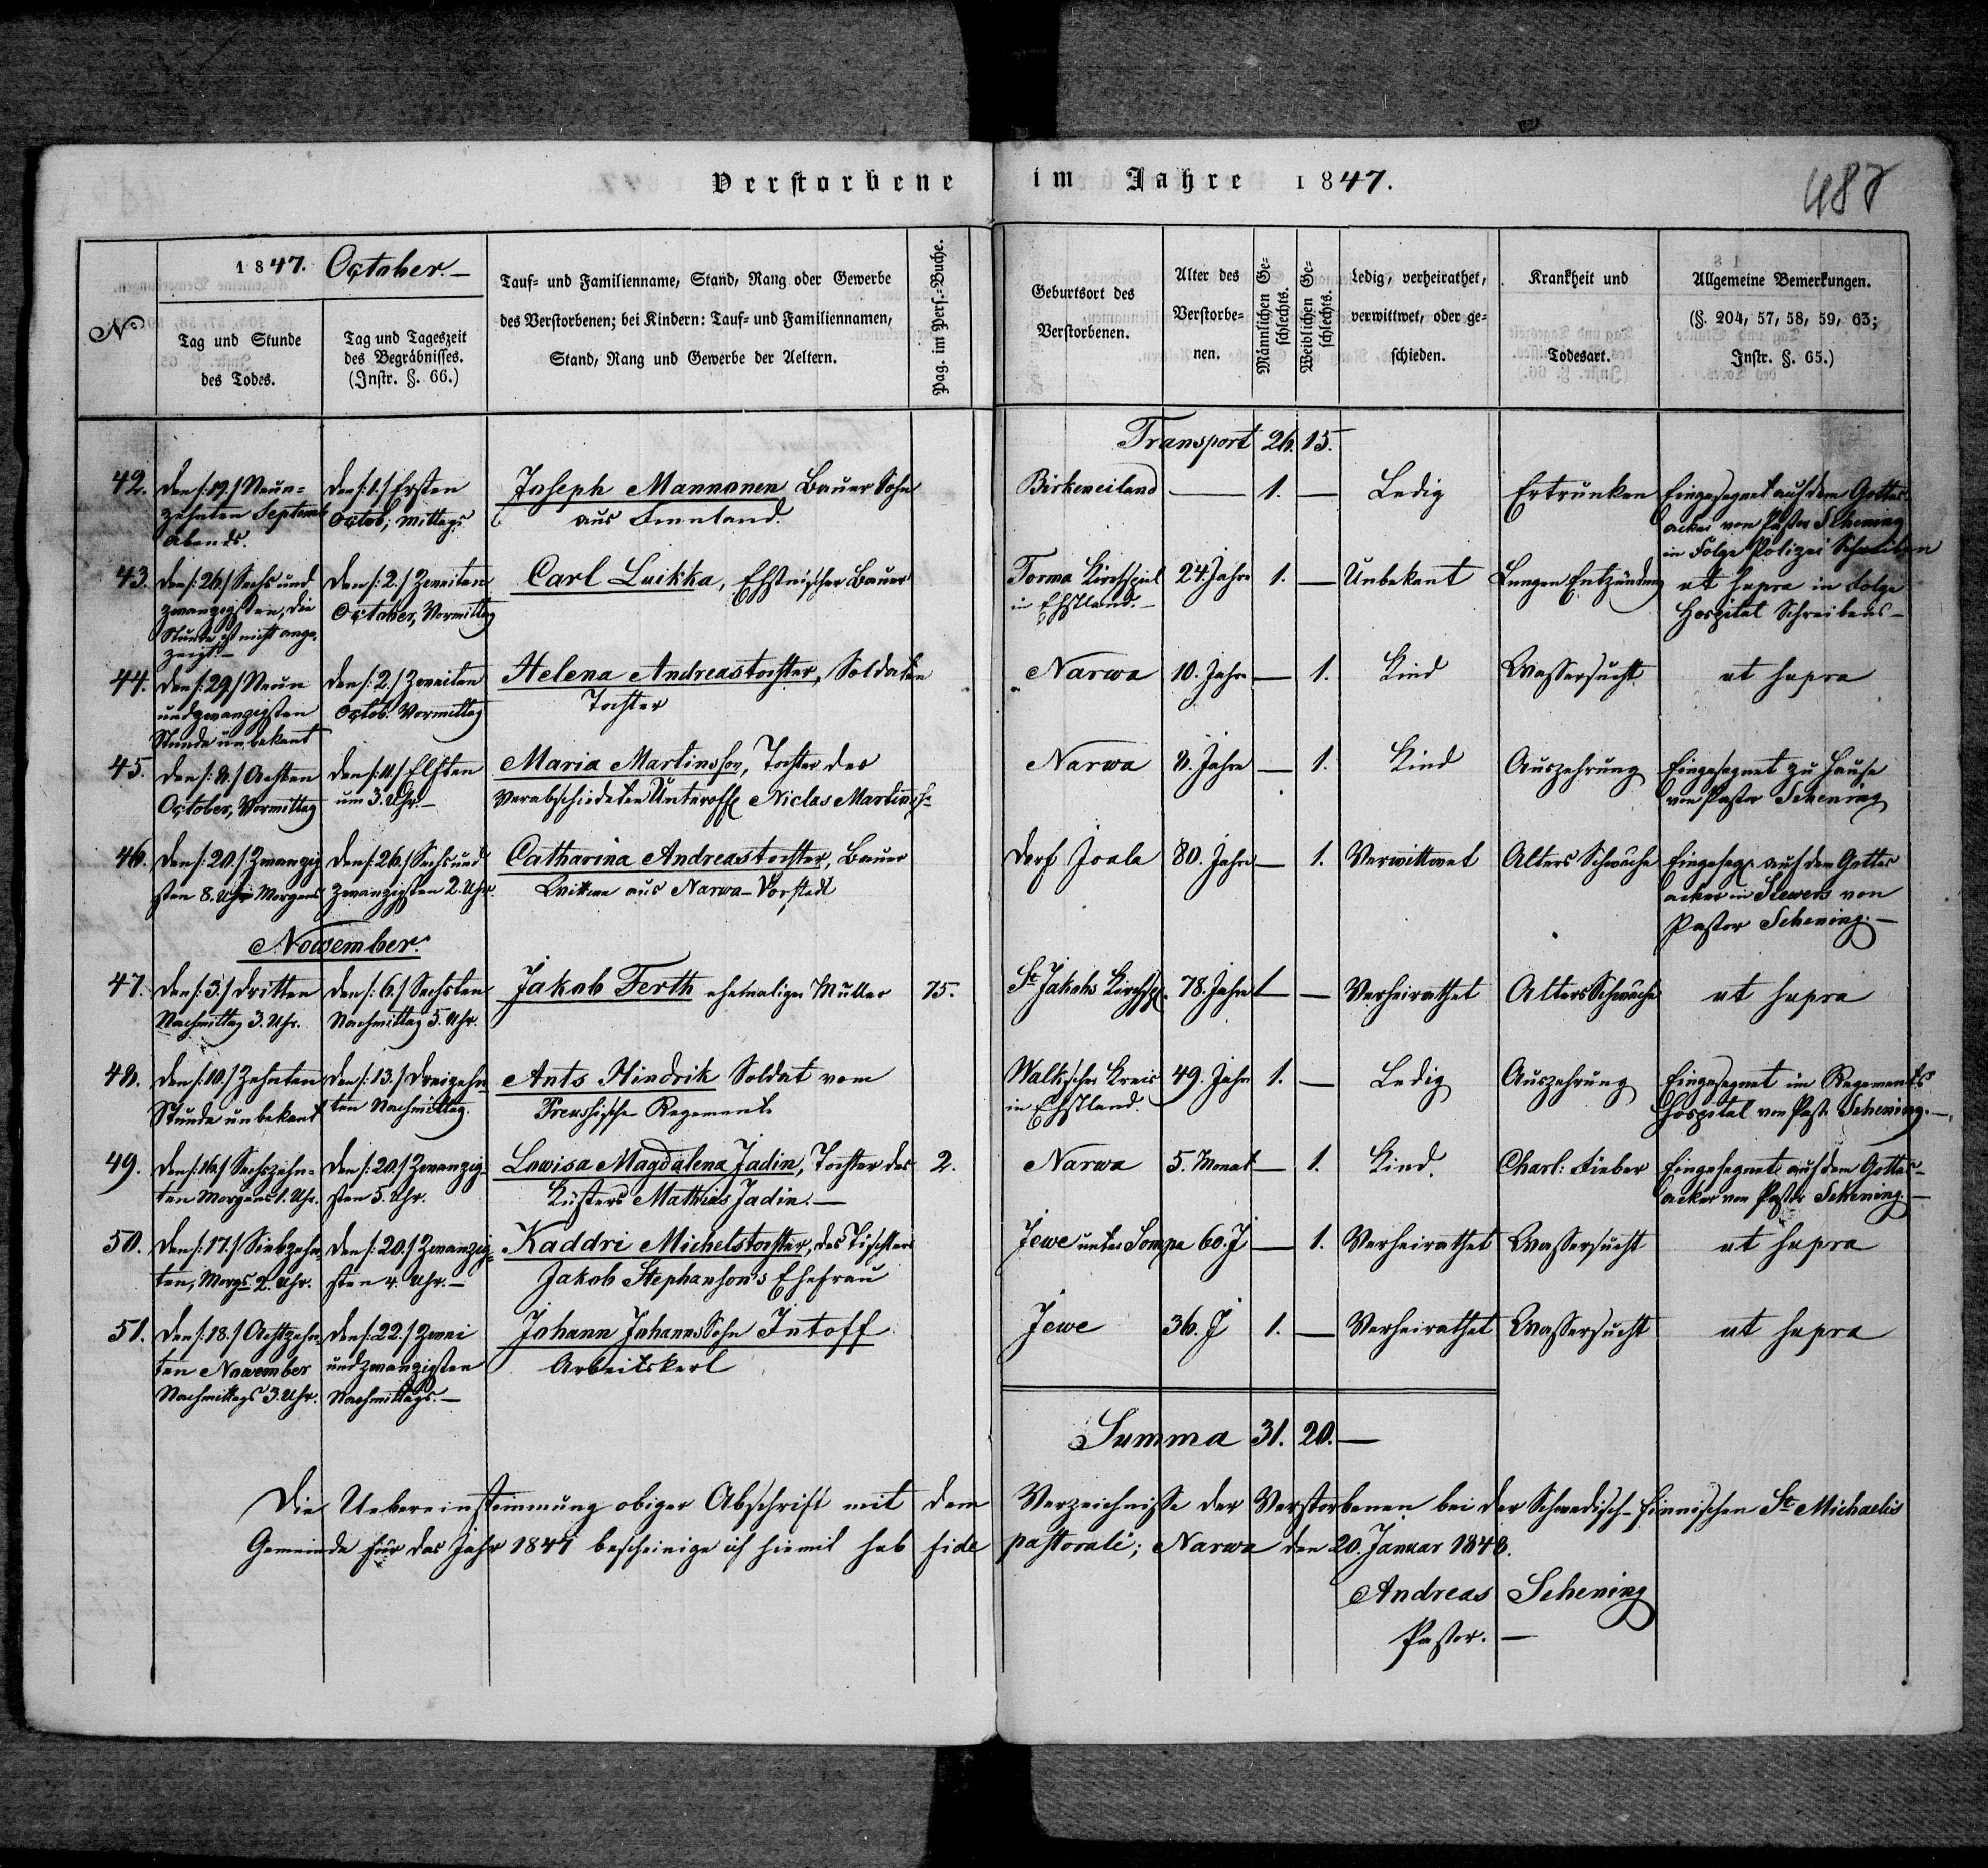 Verstorbene im Jahre 1847.
487
1847. October.
No
Tag und Stunde des Todes.
Tag und Tageszeit des Begräbnisses. (Instr. §. 66.)
Tauf- und Familienname, Stand, Rang oder Gewerbe
des Verstorbenen; bei Kindern: Tauf- und Familiennamen,
Stand, Rang und Gewerbe der Aeltern.
Pag. im Pers.-Buche.
Geburtsort des Verstorbenen.
Alter des Verstorbe-nen.
Männlichen Ge-schlechts.
Weiblichen Ge-schlechts.
Ledig, verheirathet, verwittwet, oder ge-schieden.
Krankheit und Todesart.
Allgemeine Bemerkungen. (§. 204, 57, 58, 59, 63; Instr. §. 65.)
Transport 26. 15.
42. den /:19./ Neun- den /:1./ Ersten Joseph Mannonen Bauer Sohn Birkeneiland — 1. — Ledig Ertrunken Eingesegnet auf dem Gottes
zehnten Septemb Octob; Mittags aus Finnland. acker von Pastor Schening
Abends. in Folge Polizei Schreiben
43. den /:26./ Sechs und den /:2./ Zweiten Carl Luikka, Ehstnischer Bauer Torma Kirchspiel 24. Jahre 1. — Unbekant Lungen Entzündung ut supra in Folge
zwanzigsten, die October, Vormittag in Ehstland. — Hospital Schreibens —
Stunde ist nicht ange-
zeigt. —
44. den /:29./ Neun den /:2./ Zweiten Helena Andreastochter, Soldaten Narwa 10. Jahre — 1. Kind Wassersucht ut supra
undzwanzigsten Octob. Vormittag Tochter
Stunde unbekant
45. den /:8./ Achten den /:11./ Elften Maria Martinsson, Tochter des Narwa 8. Jahre — 1. Kind Auszehrung Eingesegnet zu Hause
October, Vormittag um 3. Uhr. — Verabschiedeten Unteroff Niclas Martinss- von Pastor Schening
46. den /:20./ Zwanzig den /:26./ Sechs und Catharina Andreastochter, Bauer Dorf Joala 80. Jahre — 1. Verwittwet Alters Schwäche Eingeseg auf dem Gottes
sten 8. Uhr Morgens zwanzigsten 2. Uhr. Wittwe aus Narwa-Vorstadt acker in von
Pastor Schening. —
November.
47. den /:3./ Dritten den /:6./ Sechsten Jakob Ferth ehemaliger Müller 75. St Jakobs Kirchsp. 78. Jahre 1 — Verheirathet Alters Schwäche ut supra
Nachmittag 3. Uhr. Nachmittag 5. Uhr.
48. den /:10./ Zehnten den /:13./ Dreizehn Ants Hindrik Soldat vom Walksche Kreis 49. Jahr 1. — Ledig Auszehrung Eingesegnet im Regements
Stunde unbekant ten Nachmittag. Preussische Regement. in Ehstland. Hospital von Past. Schening. —
49. den /:16./ Sechszehn- den /:20./ Zwanzig Lowisa Magdalena Jadin, Tochter des 2. Narwa 5. Monat — 1. Kind. Charl: Fieber Eingesegnet auf dem Gottes-
ten Morgens 1. Uhr. sten 5. Uhr. Küsters Mathias Jadin. — acker von Pastor Schening. —
50. den /:17./ Siebzehn den /:20./ Zwanzig- Kaddri Michelstochter, des Tischlers Jewe unter Sompa 60. J — 1. Verheirathet Wassersucht ut supra
ten, Morgs 2. Uhr. sten 4. Uhr. — Jakob Stephanson's Ehefrau
51. den /:18./ Achtzehn- den /:22./ Zwei Johann Johanns Sohn Intoff Jewe 36. J 1. — Verheirathet Wassersucht ut supra
ten November undzwanzigsten Arbeitskerl
Nachmittags 3. Uhr. Nachmittags. —
Summa 31. 20. —
Die Uebereinstimmung obiger Abschrift mit dem Verzeichnisse der Verstorbenen bei der Schwedisch-finnischen St Michaelis
Gemeinde für das Jahr 1847 bescheinige ich hiemit sub fide pastorali; Narwa den 20. Januar 1848.
Andreas Schening
Pastor. —